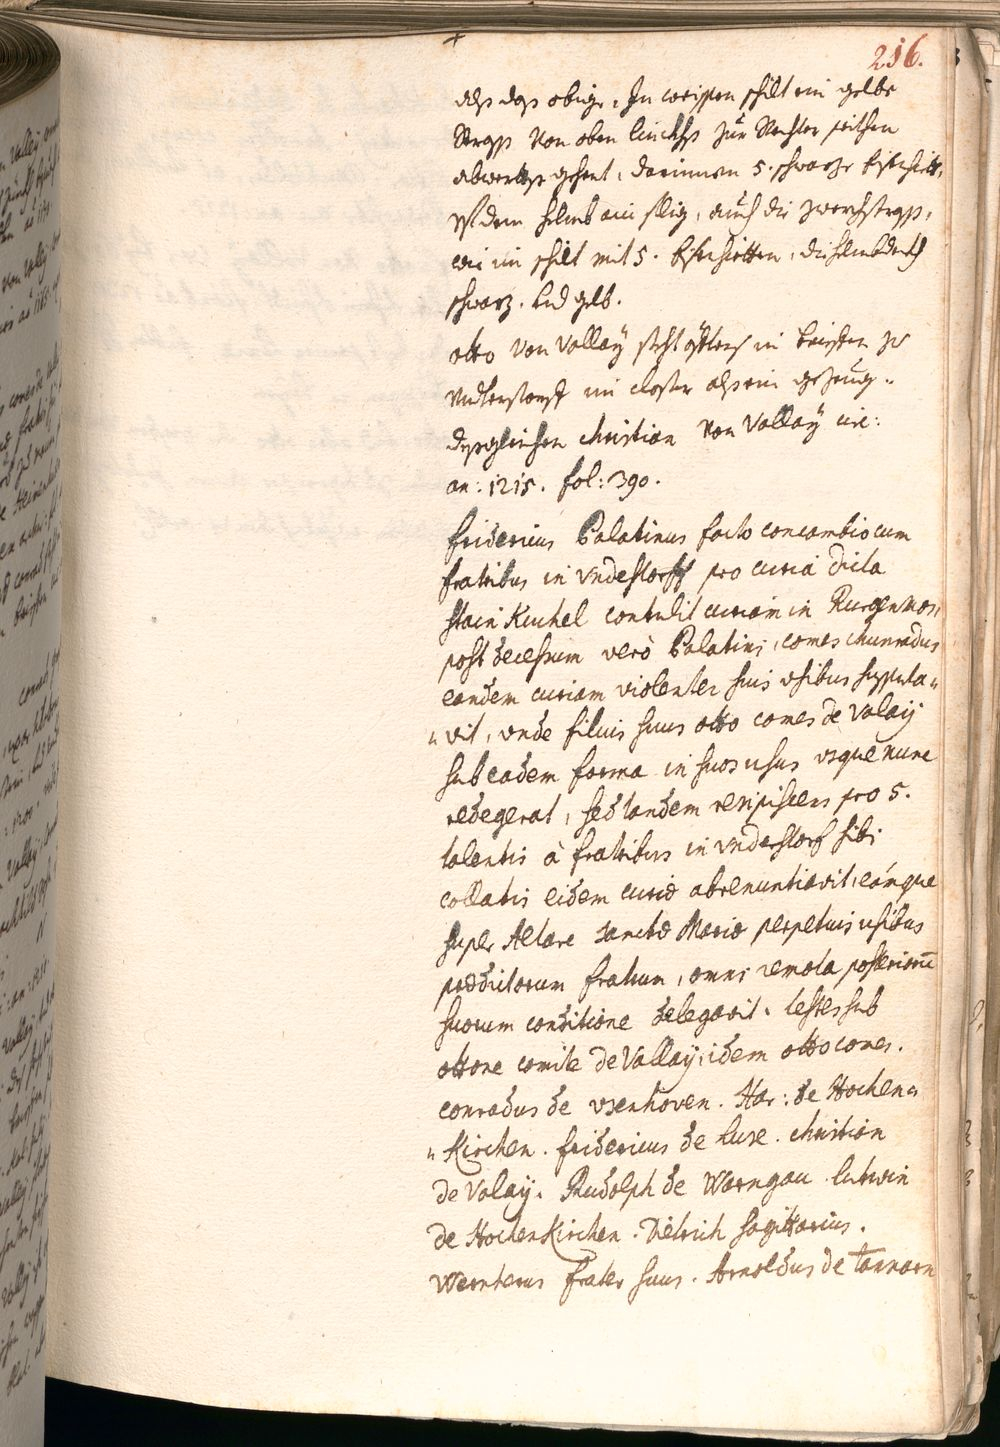 216.
alß das obige, In weissen schilt ein gelbe
strass von oben linckhs zur Rechten seithen
abwerths gehent, darinnen 5. schwarze
Vf dem helmb ain flig, durch die zwerchstrass,
wie im schilt mit 5. die helmbdeckh
schwarz. und gelb.
otto von Vallaÿ steht öffters in brieffen zu
Understorff im closter alß ein gezeug.
dessgleichen Christian von Vallaÿ circ:
an: 1215. fol: 390.
fridericus Palatinus facto concambio cum
fratribus in Vndestorff pro curia dicta
stain Kuchel contulit curiam in Rurgenmos,
post decessum verò Palatini, comes chunradus
eandem curiam violenter suis vsibus
vit, vnde filius suus otto comes de Valaÿ
sub eadem forma in suos usus vsque nunc
redegerat, sed tandem resipiscens pro 5.
talentis à fratribus in vnderstorf sibi
collatis eidem curiæ abrenuntiavit, eámque
super Altare sanctæ Mariæ perpetuis usibus
prædictorum fratrum, omni remota posteriorū
suorum conditione delegavit. testes sub
ottone comite de Vallaÿ, idem otto comes.
conradus de vsenhoven. Har: de Hochen=
=Kirchen. fridericus de Luxe. Christian
de Valaÿ. Rudolph de Warngau. Lutwin
de HochenKirchen. Dietrich sagittarius.
Wernherus frater suus. Arnoldus de Tannarn